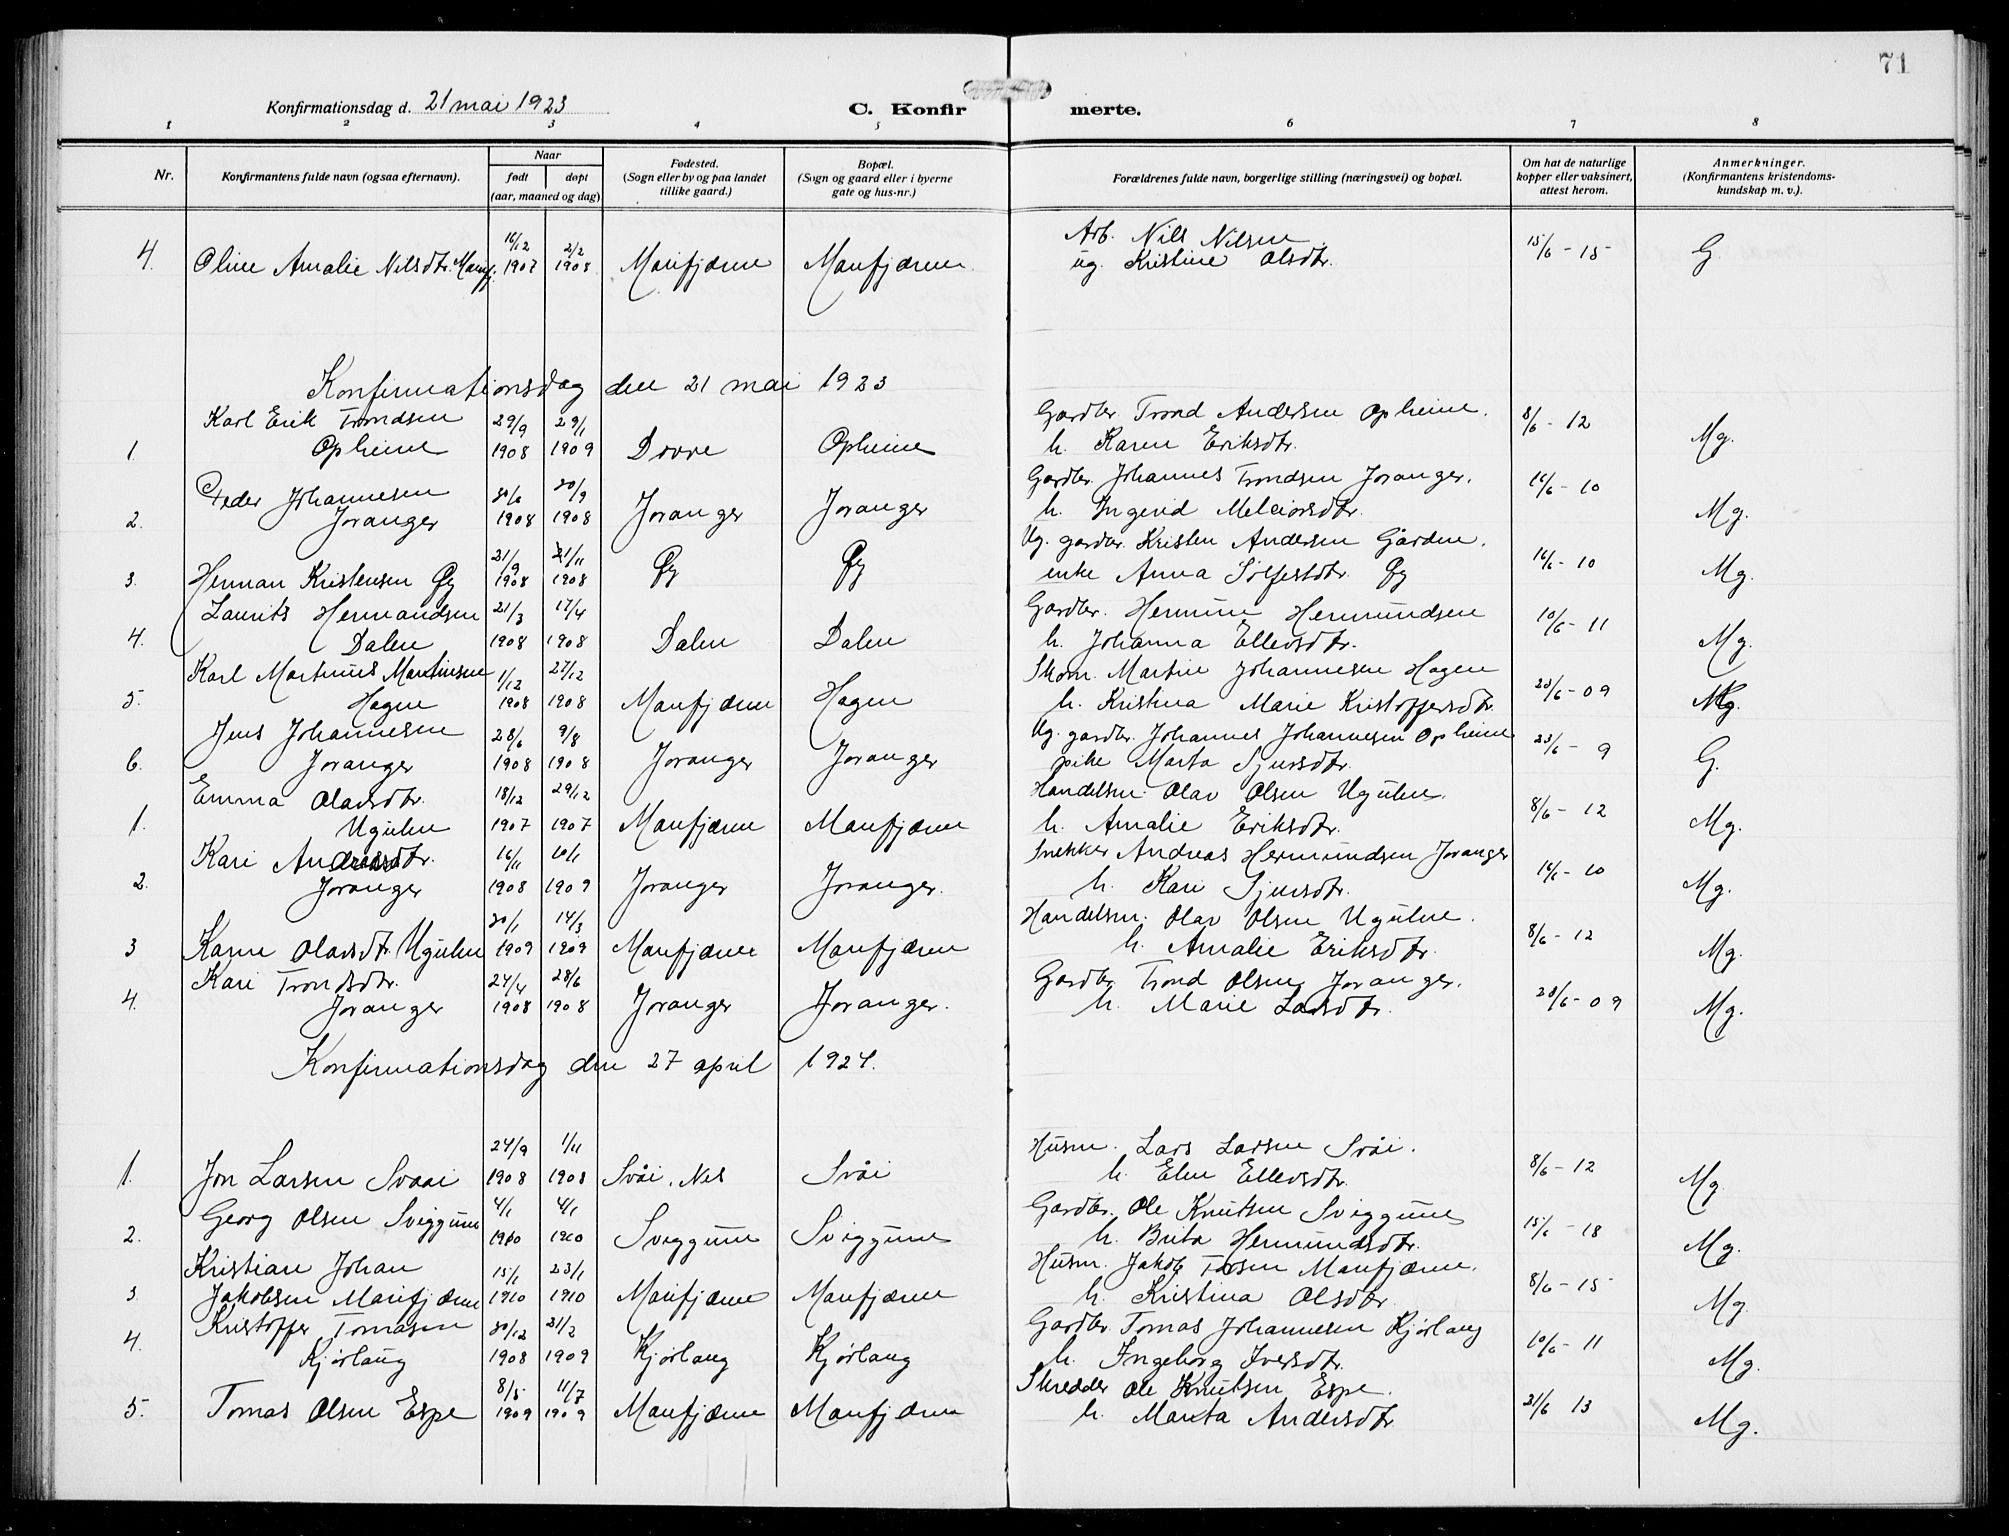 71
Konfirmationsdag d. 21 mai 1923
C. Konfir merte.
1 2 3 4 5 6 7 8
Nr. Konfirmantens fulde navn (ogsaa efternavn). Naar født døpt (aar, maaned og dag) Fødested. (Sogn eller by og paa landet tillike gaard.) Bopæl. (Sogn og gaard eller i byerne gate og hus-nr.) Forældrenes fulde navn, borgerlige stilling (næringsvei) og bopæl. Om hat de naturlige kopper eller vaksinert, attest herom. Anmerkninger. (Konfirmantens kristendoms-kundskap m. v.).
16/12 2/2 Arb. Nils Nilsen 15/6 - 15
4. Oline Amalie Nilsdtr. Marifj. 1907 1908 Marifjæren Marifjæren ug. Kristine Olsdtr. G.
Konfirmationsdag den 21 mai 1923
Karl Erik Trondsen 29/9 29/1 Gardbr. Trond Andersen Opheim. 8/6 - 12
1 Opheim 1908 1909 Dovre Opheim h. Karen Eriksdtr. Mg.
Peder Johannesen 30/6 20/9 Gardbr. Johannes Trondsen Joranger. 16/6 - 10
2. Joranger 1908 1908 Joranger Joranger h. Ingerid Melciorsdtr. Mg.
21/9 21/11 Ug. gardbr. Kristen Andersen Gården.
3. Herman Kristensen Øy 1908 1908 Øy Øy enke Anna Sølfestdtr. Øy 16/6 - 10 Mg.
Laurits Hermandsen 21/3 17/4 Gardbr. Hermun Hermundsen 10/6 - 11
4. Dalen 1908 1908 Dalen Dalen h. Johanna Ellevsdtr. Mg.
Karl Martinus Martinsen 1/12 27/12 Skom. Martin Johannesen Hagen
5. Hagen 1908 1908 Marifjæren Hagen h. Kristina Marie Kristoffersdtr. 23/6 - 09 Mg.
Jens Johannesen 28/6 9/8 Ug. gardbr. Johannes Johannesen Opheim
6. Joranger 1908 1908 Joranger Joranger pike Marta Sjursdtr. 23/6 - 9 G.
Emma Olavsdtr. 18/12 29/12 Handelsm. Olav Olsen Ugulen.
1. Ugulen 1907 1907 Marifjæren Marifjæren h. Amalie Eriksdtr. 8/6 - 12 Mg.
Kari Andreasdtr. 16/11 10/1 Snekker Andreas Hermundsen Joranger
2. Joranger 1908 1909 Joranger Joranger. h. Kari Sjursdtr. 16/6 - 10 Mg.
20/1 14/3 Handelsm. Olav Olsen Ugulen.
3 Karen Olavsdtr. Ugulen 1909 1909 Marifjæren Marifjæren h. Amalie Eriksdtr. 8/6 - 12 Mg.
Kari Trondsdtr. 24/4 28/6 Gardbr. Trond Olsen Joranger.
4. Joranger 1908 1908 Joranger Joranger. h. Marie Larsdtr. 23/6 - 09 Mg.
Konfirmationsdag den 27 april 1924.
24/9 1/11 Husm. Lars Larsen Svåi.
1. Jon Larsen Svaai 1908 1908 Svåi, Nes Svåi h. Elen Ellevsdtr. 8/6 - 12 Mg.
Georg Olsen Sviggum 4/1 4/1 Gardbr. Ole Knutsen Sviggum
2. 1910 1910 Sviggum Sviggum h. Brita Hermundsdtr. 15/6 - 18 Mg.
Kristian Johan 15/1 23/1 Husm. Jakob Tørsen Marifjæren.
3. Jakobsen Marifjæren 1910 1910 Marifjæren Marifjæren h. Kristina Olsdtr. 8/6 - 15 Mg.
Kristoffer Tomasen 30/12 21/2 Gardbr. Tomas Johannesen Kjørlaug
4. Kjørlaug 1908 1909 Kjørlaug Kjørlaug h. Ingeborg Iversdtr. 10/6 - 11 Mg.
8/5 11/7 Skredder Ole Knutsen Espe.
5. Tomas Olsen Espe 1909 1909 Marifjæren Marifjæren h. Marita Andersdtr. 21/6 13 Mg.